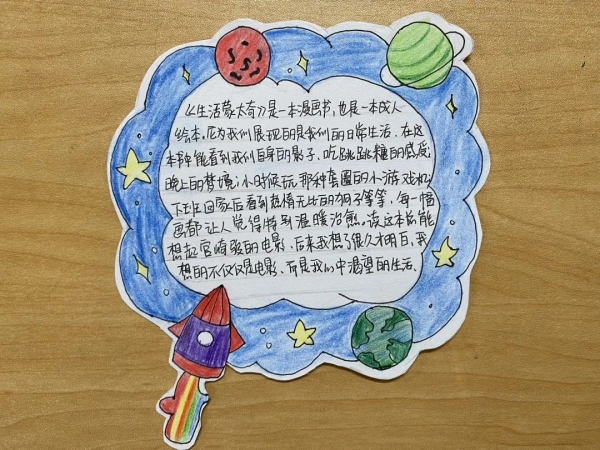 《生活蒙太奇》是一本漫画书,也是一本成人
绘本,因为我们展现的是我们的日常生活,在这
本书能看到我们自身的影子、吃跳跳糖的感受,
晚上的梦境;小时候玩那种套圈的小游戏机
下班回家后看到热情无比的狗子等等,每一幅
画都让人觉得特别温暖治愈。读这本总能
想起宫崎骏的电影、后来我想了很久才明白,我
想的不仅仅是电影、而是我们心中渴望的生活、